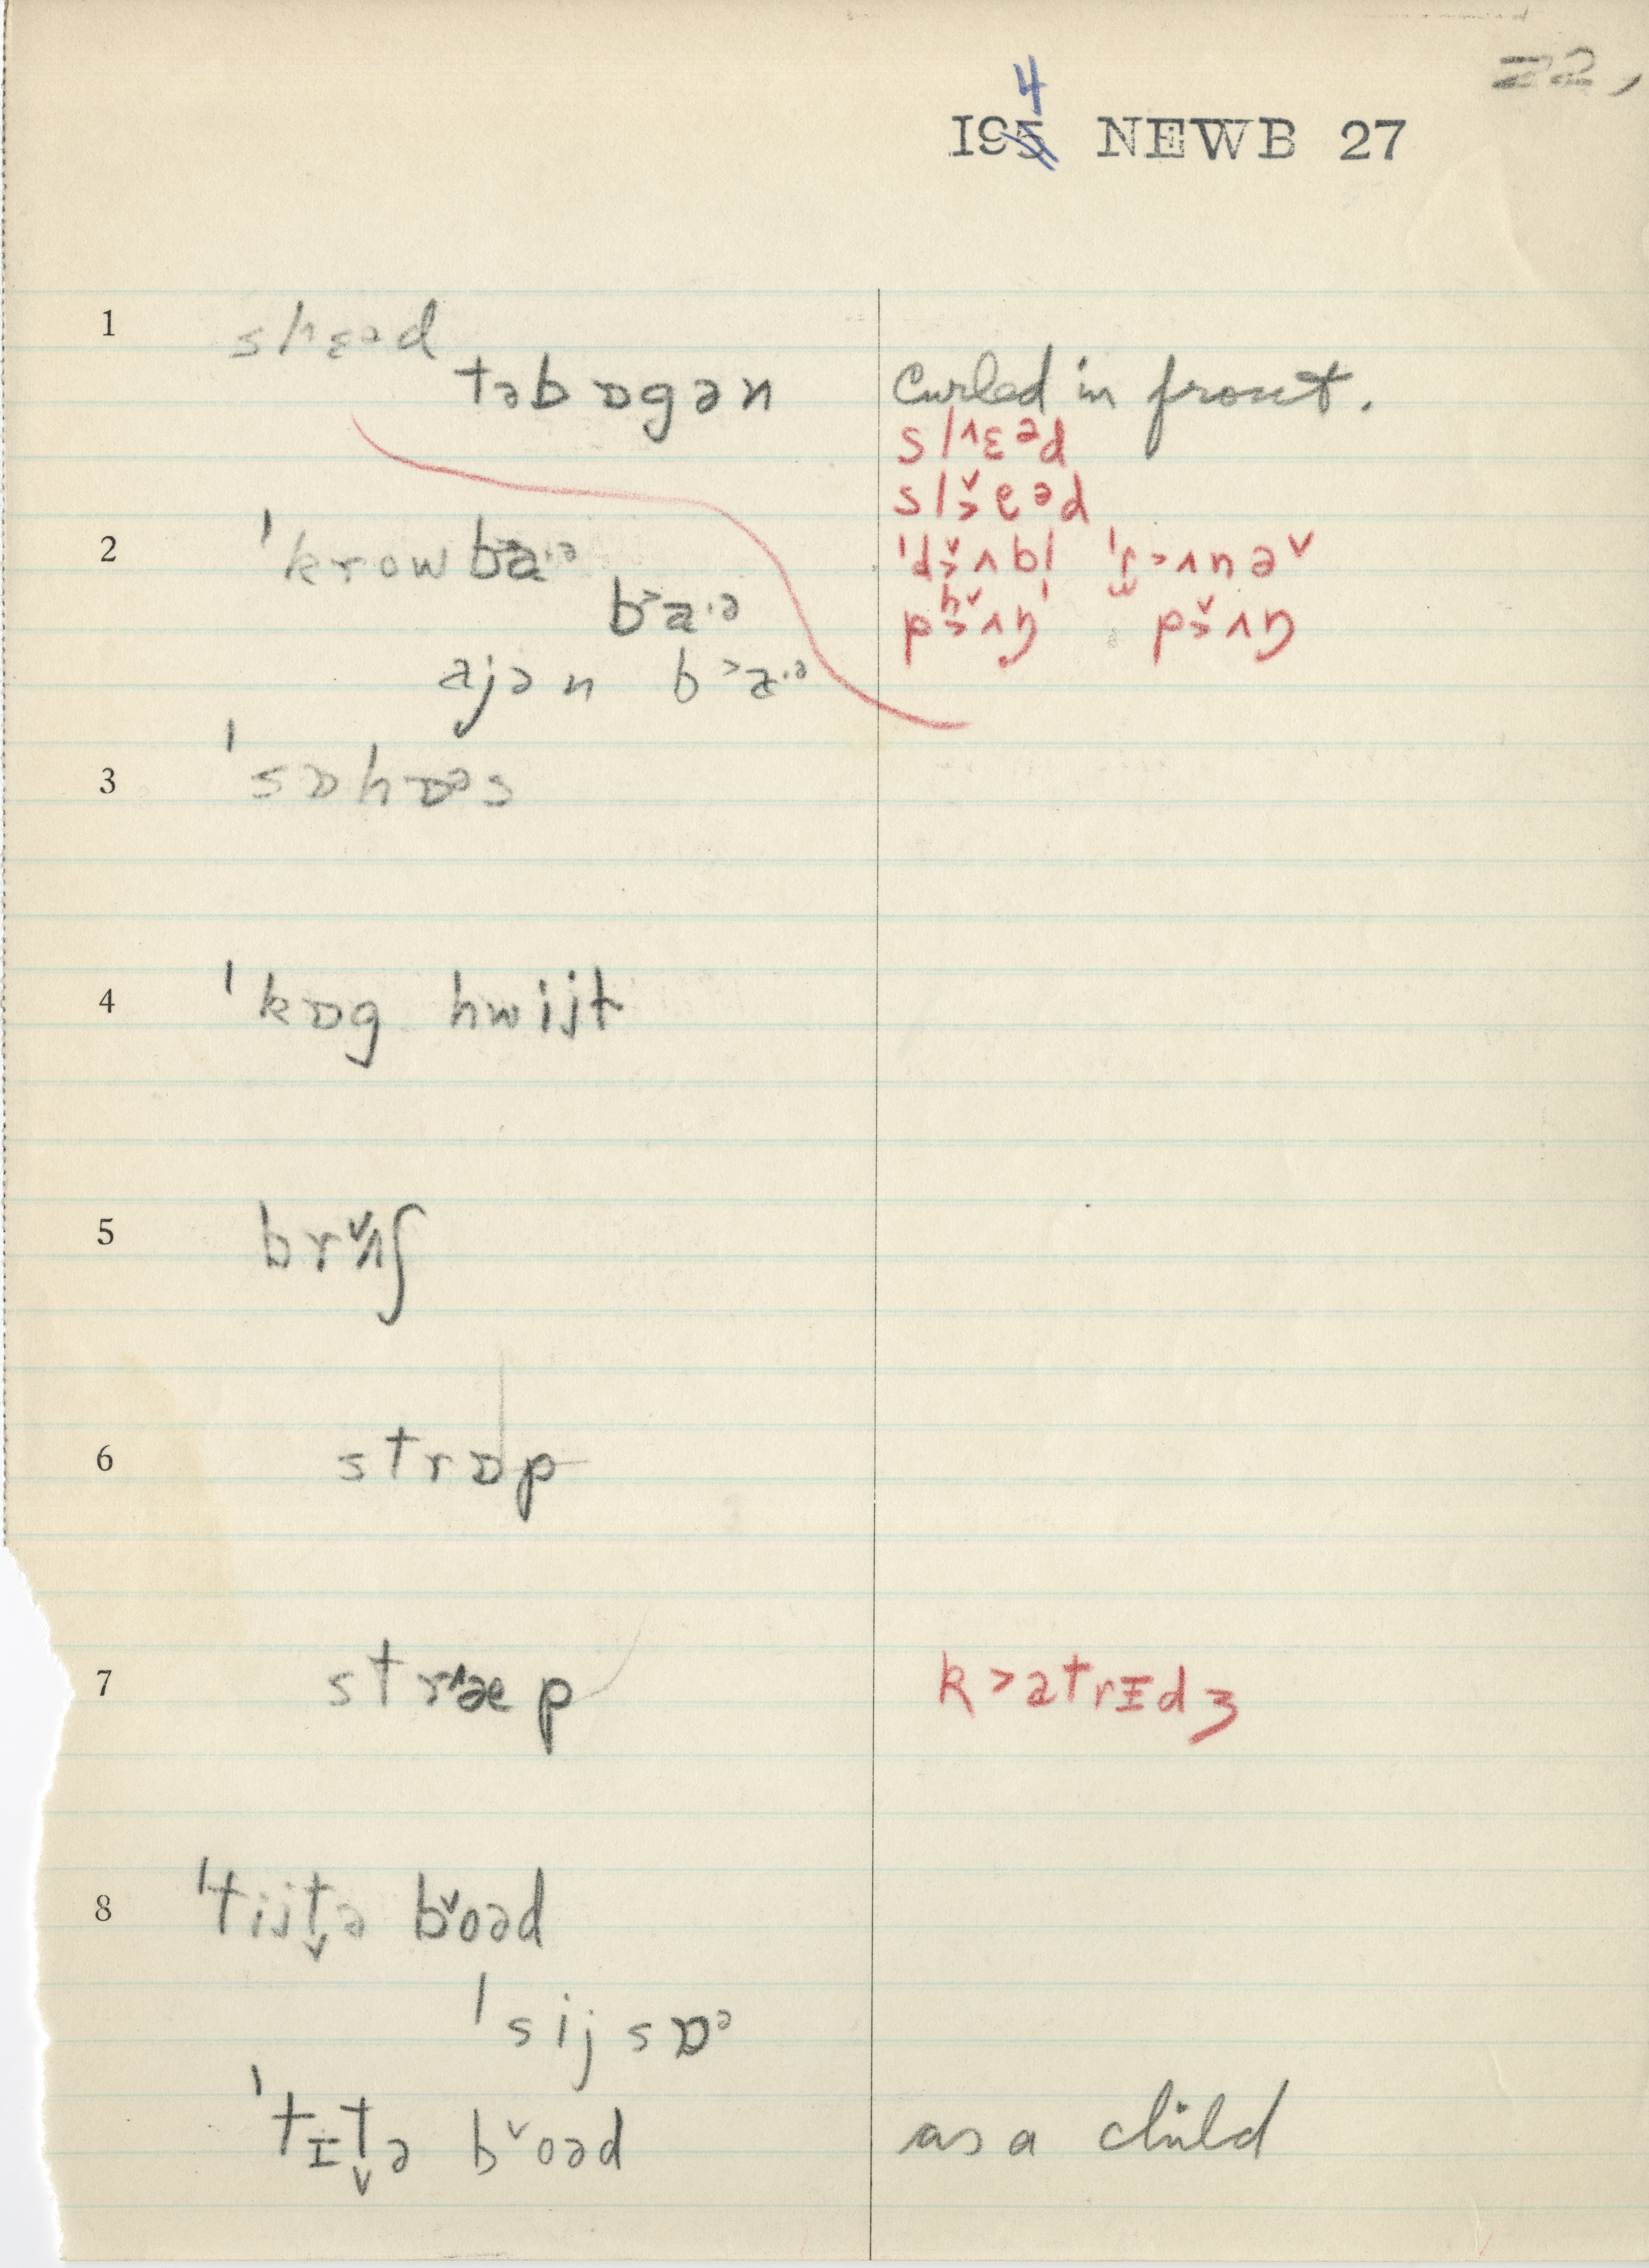 22,
4
195 NEWB 27
1 sl^ɛᵊd
təbɒgən Curled in front.
sl^ɛᵊd
slˬeᵊd
2 ˈkrowba·ᵊ
b˃a·ᵊ
ajən b˃a·ᵊ
3 ˈsɒhɒᵊs
4 ˈkɒg hwijt
5 brʌ̌ʃ
6 strɒp
7 str^æp k˃atrɪdʒ
8 ˈtijt̬ə bˇoəd
ˈsijsɒᵊ
ˈtɪt̬ə bˇoəd as a child